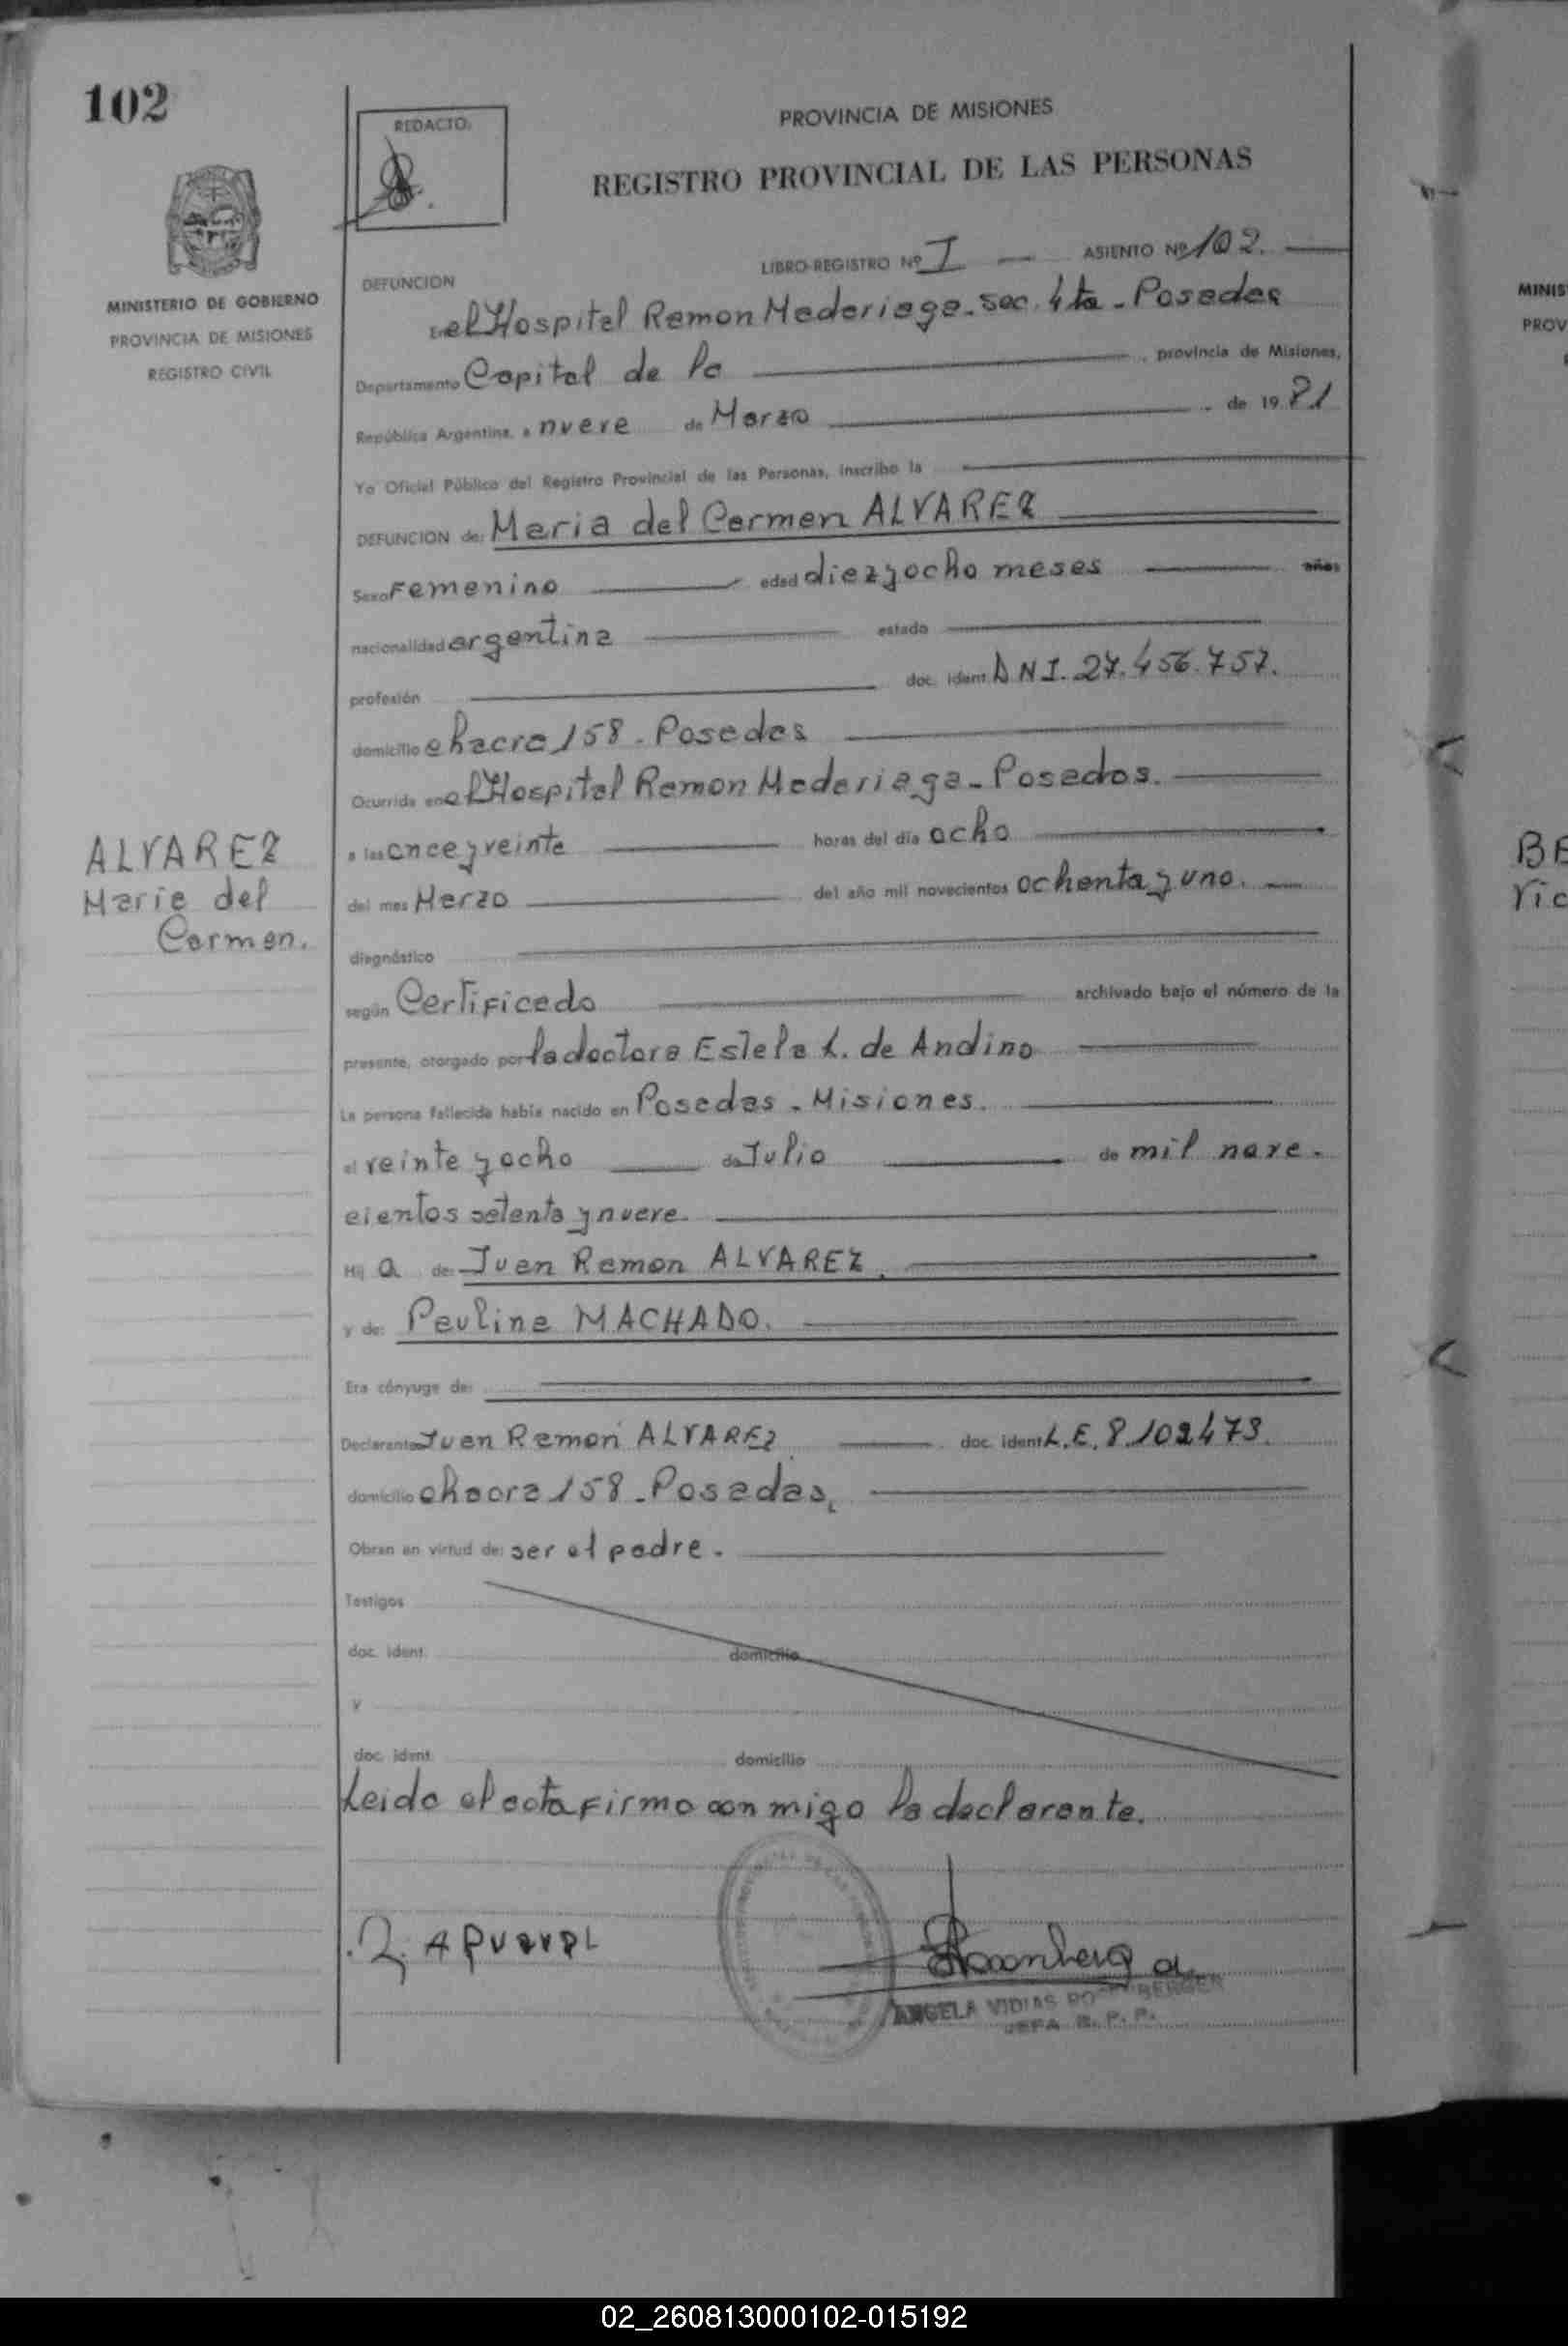 102
REDACTO.
PROVINCIA DE MISIONES
REGISTRO PROVINCIAL DE LAS PERSONAS
MINISTERIO DE GOBIERNO
PROVINCIA DE MISIONES
REGISTRO CIVIL
LIBRO-REGISTRO Nº I — ASIENTO Nº 102.
DEFUNCION
En el Hospital Ramon Madariaga - sec. 4ta - Posadas
Departamento Capital de la provincia de Misiones,
República Argentina, a nueve de Marzo de 1981
Yo Oficial Público del Registro Provincial de las Personas, inscribo la
DEFUNCION de: Maria del Carmen ALVAREZ
Sexo Femenino edad diezyocho meses años
nacionalidad argentina estado
profesión doc. ident. D N I. 27.456.757.
domicilio chacra 158 - Posadas
Ocurrida en el Hospital Ramon Madariaga - Posadas.
a las once y veinte horas del día ocho
del mes Marzo del año mil novecientos ochenta y uno.
ALVAREZ
Maria del
Carmen.
diagnóstico
según Certificado archivado bajo el número de la
presente, otorgado por la doctora Estela L. de Andino
La persona fallecida había nacido en Posadas - Misiones.
el veinte y ocho de Julio de mil nove-
cientos setenta y nueve.
Hij a de: Juan Ramon ALVAREZ.
y de: Paulina MACHADO.
Era cónyuge de:
Declarante Juan Ramon ALVAREZ doc. ident. L.E. 8.102473.
domicilio chacra 158 - Posadas,
Obran en virtud de: ser el padre.
Testigos
doc. ident. domicilio
y
doc. ident. domicilio
Leida el acta firma con migo la declarante.
ANGELA VIDIAS
JEFA R. P. P.
MINIS
PROV
BE
Vic
02_260813000102-015192